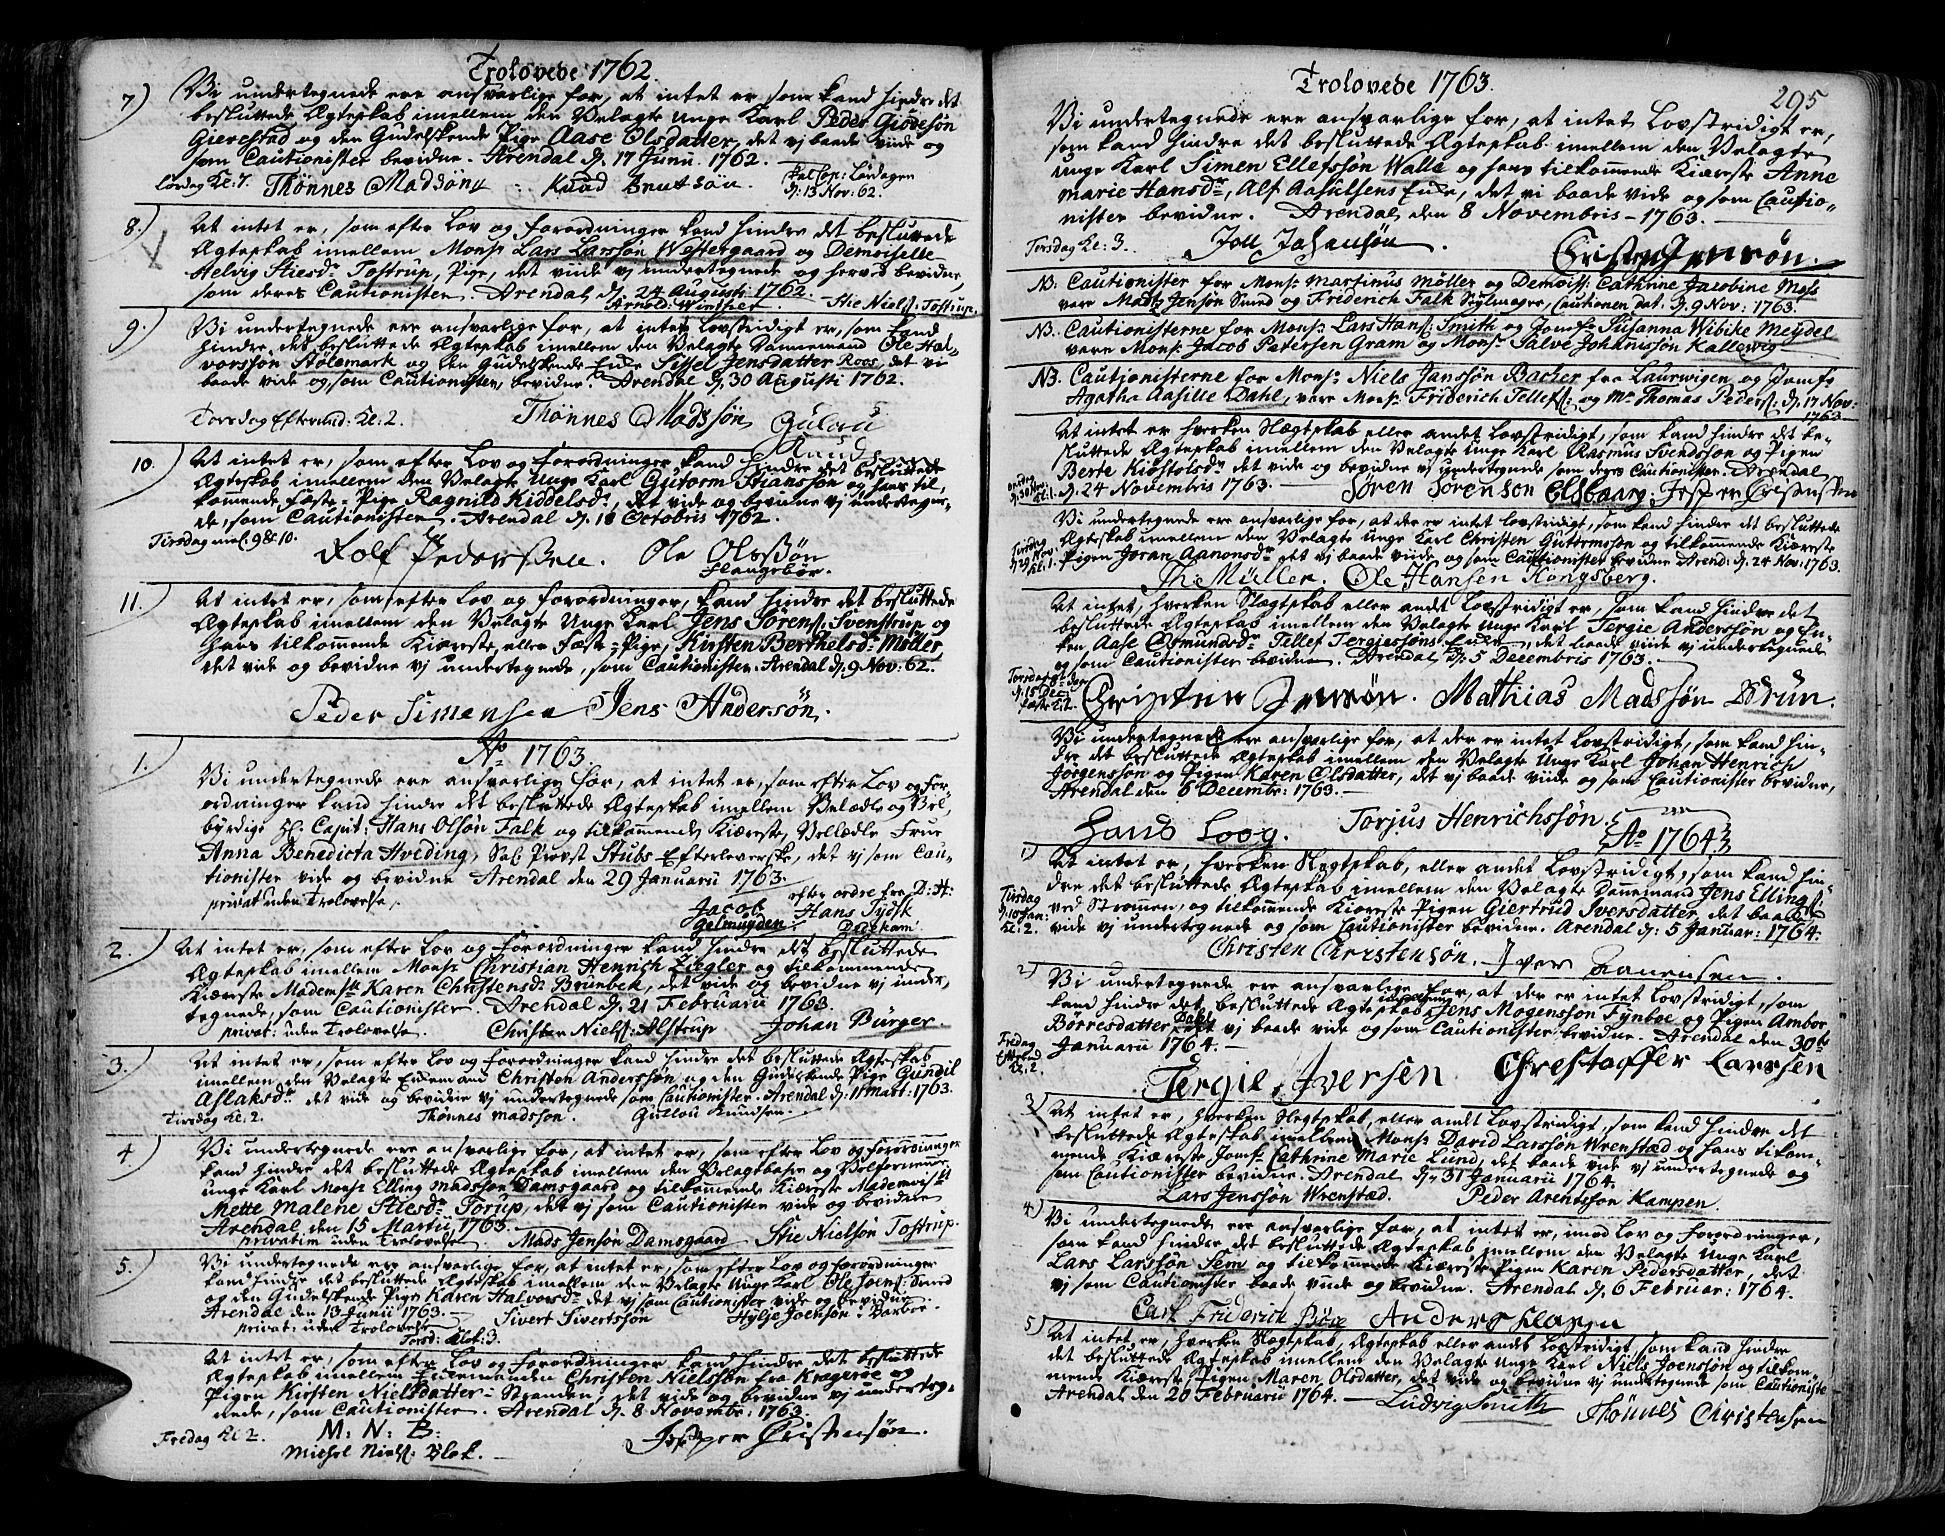 Trolovede 1762.
7) Vi undertegnede ere ansvarlige for, at intet er, som kand hindre det
besluttede Ægteskab imellem den Velagte Unge Karl Peder Giodesøn
Gierestad og den Gudelskende Pige Aase Olsdatter, det vj baade viide og
som Cautionister bevidne. Arendal d. 17 Junii. 1762.
Lørdag Kl: 7. Thønnes Madsøn Knud Knutsøn. skal Cop: Lørdagen
d: 13 Nov: 62.
8. At intet er, som efter Lov og Forordninger kand hindre det besluttede
Ægteskab imellem Monsr Lars Larssøn Westergaard og Demoiselle
Helvig Stiesdr Tostrup, Pige, det viide vj undertegnede og herved bevidne,
som deres Cautionister. Arendal d. 24 Augusti 1762.
Arnold Winther Stie Niels: Tostrup.
9. Vi undertegnede ere ansvarlige for, at intet Lovstridigt er, som kand
hindre det besluttede Ægteskab imellem den Velagte Dannemand Ole Hal-
vorssøn Stølemark og den Gudelskende Enke Sissel Jensdatter Roos, det vi
baade vide og som Cautionister, bevidne. Arendal d. 30 Augusti 1762.
Torsdag Eftermid: Kl: 2. Thønnes Madssøn Gulou
Knudsen
10. At intet er, som efter Lov og Forordninger kand hindre det besluttede
Ægteskab imellem den Velagte Unge Karl Gutorm Stianssøn og hans til-
kommende Fæste-Pige Ragnild Kiddelsdr, det vide og bevidne vj undertegne-
de, som Cautionister. Arendal d. 18 Octobris 1762.
Tirsdag mel. 9 & 10. Rolf Pederssen. Ole Olssøn
Flangebør.
11. At intet er, som efter Lov og Forordninger, kand hindre det besluttede
Ægteskab imellem den Velagte Unge Karl Jens Sørens: Svenstrup og
hans tilkommende Kiæreste eller Fæste-Pige, Kirsten Berthelsdr Møller
det vide og bevidne vj undertegnede, som Cautionister. Arendal d. 9 Nov: 62.
Peder Simensen Jens Andersøn.
Ao 1763.
1. Vi undertegnede ere ansvarlige for, at intet er, som efter Lov og For-
ordninger kand hindre det besluttede Ægteskab imellem Velædle og Vel-
byrdige Hr. Capit: Hans Olsøn Falk og tilkommende Kiæreste, Velædle Frue
Anna Benedicta Hveding, Sal: Provst Stubs Efterleverske, det vj som Cau-
tionister vide og bevidne Arendal den 29 Januarii 1763.
privat uden Trolovelse. efter ordre fra D: H:
Jacob Hans Tydsk
Gelmuyden. Dedekam.
2. At intet er, som efter Lov og Forordninger kand hindre det besluttede
Ægteskab imellem Monsr Christian Henrich Ziegler og tilkommende
Kiæreste Mademslle Karen Christensdr Brunbek, det vide og bevidne vj under-
tegnede, som Cautionister. Arendal d. 21 Februarii 1763.
privat: uden Trolovelse. Christen Niels: Alstrup Johan Bürger.
3. At intet er, som efter Lov og Forordninger kand hindre det besluttede Ægteskab
imellem den Velagte Enkemand Christen Anderssøn og den Gudelskende Pige Gundil
Aslaksdr det vide og bevidne vj undertegnede som Cautionister. Arendal d. 11 Mart: 1763.
Tirsdag Kl. 2. Thønnes Madsson. Gullou Knudsen
4. Vi undertegnede ere ansvarlige for, at intet er, som efter Lov og Forordninger
kand hindre det besluttede Ægteskab imellem den Velagtbare og Velfornemme
unge Karl Monsr Elling Madsson Damsgaard og tilkommende Kiæreste Mademoislle
Mette Malene Stiesdr Torup, det vj som Cautionister vide og bevidne
Arendal den 15 Martii 1763.
privatim uden Trolovelse Mads Jensøn Damsgaard Stie Nielsøn Tostrup.
5. Vi undertegnede ere ansvarlige for, at intet er, som efter Lov og Forordninger
kand hindre det besluttede Ægteskab imellem den Velagte Unge Karl Ole Joens: Smed
og den Gudelskende Pige Karen Halvorsdr det vj som Cautionister vide og bevidne.
Arendal den 13 Junii 1763.
privat: uden Trolovelse Sivert Sivertssøn Hylje Jockson: Barboe.
Torsd: Klok: 3.
At intet er, som efter Lov og Forordninger kand hindre det besluttede
Ægteskab imellem Enkemanden Christen Nielssøn fra Kragerøe og
Pigen Kirsten Nielsdatter Stranden; det vide og bevidne vj underteg-
nede, som Cautionister. Arendal d. 8 Novembr: 1763.
Fredag Kl 2. M: N: B: Jesper Cristensøn.
Michel Niels: Blok.
Trolovede 1763.
295
Vi undertegnede ere ansvarlige for, at intet Lovstridigt er,
som kand hindre det besluttede Ægteskab imellem den Velagte
unge Karl Simen Ellefssøn Walle og hans tilkommende Kiæreste Anne
Marie Hansdr, Alf Aasulsens Enke, det vi baade vide og som Cautio-
nister bevidne. Arendal, den 8 Novembris - 1763.
Torsdag Kl: 3. Joll Johansøn. Cristen Jensøn.
NB. Cautionister for Monsr Martinus Møller og Demoiss: Cathrine Jacobine Moss
vare Madtz Jensøn Smed og Friderich Falk Seylmager, Cautionen dat: d. 9 Nov: 1763.
NB. Cautionisterne for Monsr Lars Hans: Smith og Jomfr Susanna Wibike Meydel
vare Monsr Jacob Petersen Gram og Monsr Salve Johanissøn Kallevig
NB. Cautionisterne for Monsr Niels Janssøn Bacher fra Laurwigen og Jomfr
Agatha Aasille Dahl, vare Monsr Friderich Tellefs: og Mr Thomas Peders: d. 17 Nov:
1763
At intet er, hverken Slægtskab eller andet Lovstridigt, som kand hindre det be-
sluttede Ægteskab imellem den Velagte Unge Karl Rasmus Svendssøn og Pigen
Berte Kiøstolsdr det vide og bevidne vj undertegnede som deres Cautionister. Arendal
Onsdag
d. 30 Nov:
Kl: 1. d. 24 Novembris 1763. Søren Sørenson Elsbaarg. Jesper Cristensen
Vi undertegnede ere ansvarlige for, at der er intet Lovstridigt, som kand hindre det besluttede
Ægteskab imellem den Velagte Unge Karl Christen Gutormsson og tilkommende Kiæreste
Tirsdag
d. 29 Nov:
Kl: 1. Pigen Joran Aanonsdr det vj baade viide og som Cautionister bevidne Arend: d. 24 Nov: 1763.
Ths Müller. Ole Hansen Kongsberg.
At intet, hverken Slægtskab eller andet Lovstridigt er, som kand hindre det
besluttede Ægteskab imellem den Velagte Unge Karl Tergie Anderssøn og En-
ken Aase Osmundsdr Tellef Tergiessøns Enke, det baade vide vj undertegnede
og som Cautionister bevidne. Arendal d. 5 Decembris 1763.
Torsdag
d. 15 Dec:
Kl. 2. Christen Jensøn. Mathias Madssøn Brun.
Vi undertegnede ere ansvarlige for, at der er intet Lovstridigt, som kand hin-
dre det besluttede Ægteskab imellem den Velagte Unge Karl Johan Henrich
Jørgenssøn og Pigen Karen Olsdatter, det vj baade viide og som Cautionister bevidne,
Arendal den 6 Decembr: 1763.
Hans Loog. Torjus Henrichssøn.
Ao 1764.
1) At intet er, hverken Slegtskab, eller andet Lovstridigt, som kand hin-
dre det besluttede Ægteskab imellem den Velagte Dannemand Jens Ellings:
Tirsdag
d. 10 Jan:
Kl: 2. ved Strømmen, og tilkommende Kiæreste Pigen Giertrud Iversdatter, det baade
vide vj undertegnede og som Cautionister bevidne. Arendal d: 5 Januar: 1764.
Christen Christensøn. Iver Aanensen.
2) Vi undertegnede ere ansvarlige for, at der er intet Lovstridigt, som
kand hindre det besluttede Ægteskab imellem Jens Mogenssøn Fynboe og Pigen Ambor
Børresdatter Dahl, det vj baade vide og som Cautionister bevidne. Arendal den 30te
Fredag
Eftermd
Kl. 2. Januarii 1764.
Tergie Iversen Chrestoffer Larssen
3) At intet er, hverken Slegtskab, eller andt Lovstridigt, som kand hindre det
besluttede Ægteskab imellem Monsr David Larssøn Wrenstad og hans tilkom-
mende Kiæreste Jomfr Cathrine Marie Lund, det baade vide vj undertegnede og
som Cautionister bevidne. Arendal d. 31 Januarii 1764.
Lars Jenssøn Wrenstad. Peder Arentsson Kampen.
4) Vi undertegnede ere ansvarlige for, at intet er, imod Lov og Forordninger,
som kand hindre det besluttede Ægteskab imellem den Velagte Unge Karl
Lars Larssøn Sem og tilkommende Kiæreste Pigen Karen Pedersdatter, det
vj som Cautionister baade viide og bevidne. Arendal d. 6 Februar: 1764.
Carl Friderich Børe Anders Hagen
5) At intet er, hverken Slægtskab, Ægteskab eller andt Lovstridigt, som kand hindre
det besluttede Ægteskab imellem den Velagte Unge Karl Niels Joenssøn og tilkom-
mende Kiæreste Pigen Maren Olsdatter, det vide og bevidne vj undertegnede som Cautioniste
Arendal den 20 Februarii 1764. Ludvig Smith Thønnes Christensen